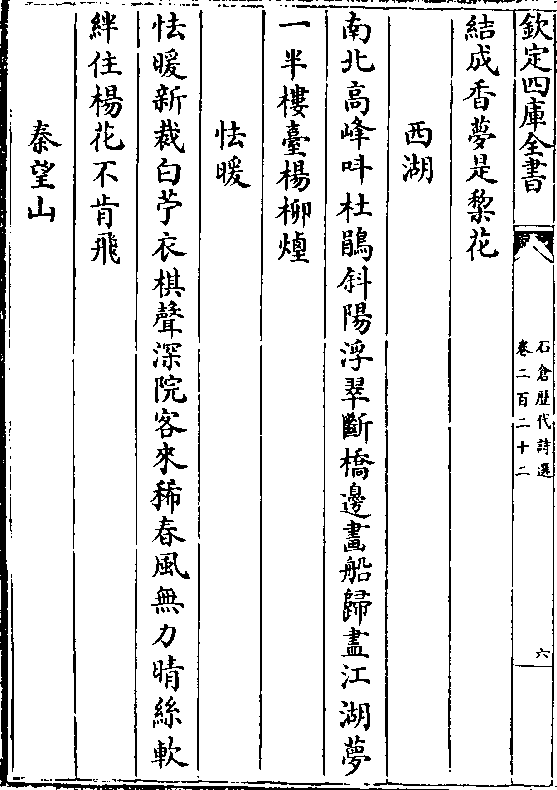 欽定四庫全書
石倉歴代詩選
卷二百二十二
六
結成香夢是棃花
西湖
南北高峰呌杜鵑斜陽浮翠斷橋邊畫船歸盡江湖夢
一半樓臺楊柳煙
怯暖
怯暖新裁白苧衣棋聲深院客來稀春風無力晴絲軟
絆住楊花不肯飛
秦望山